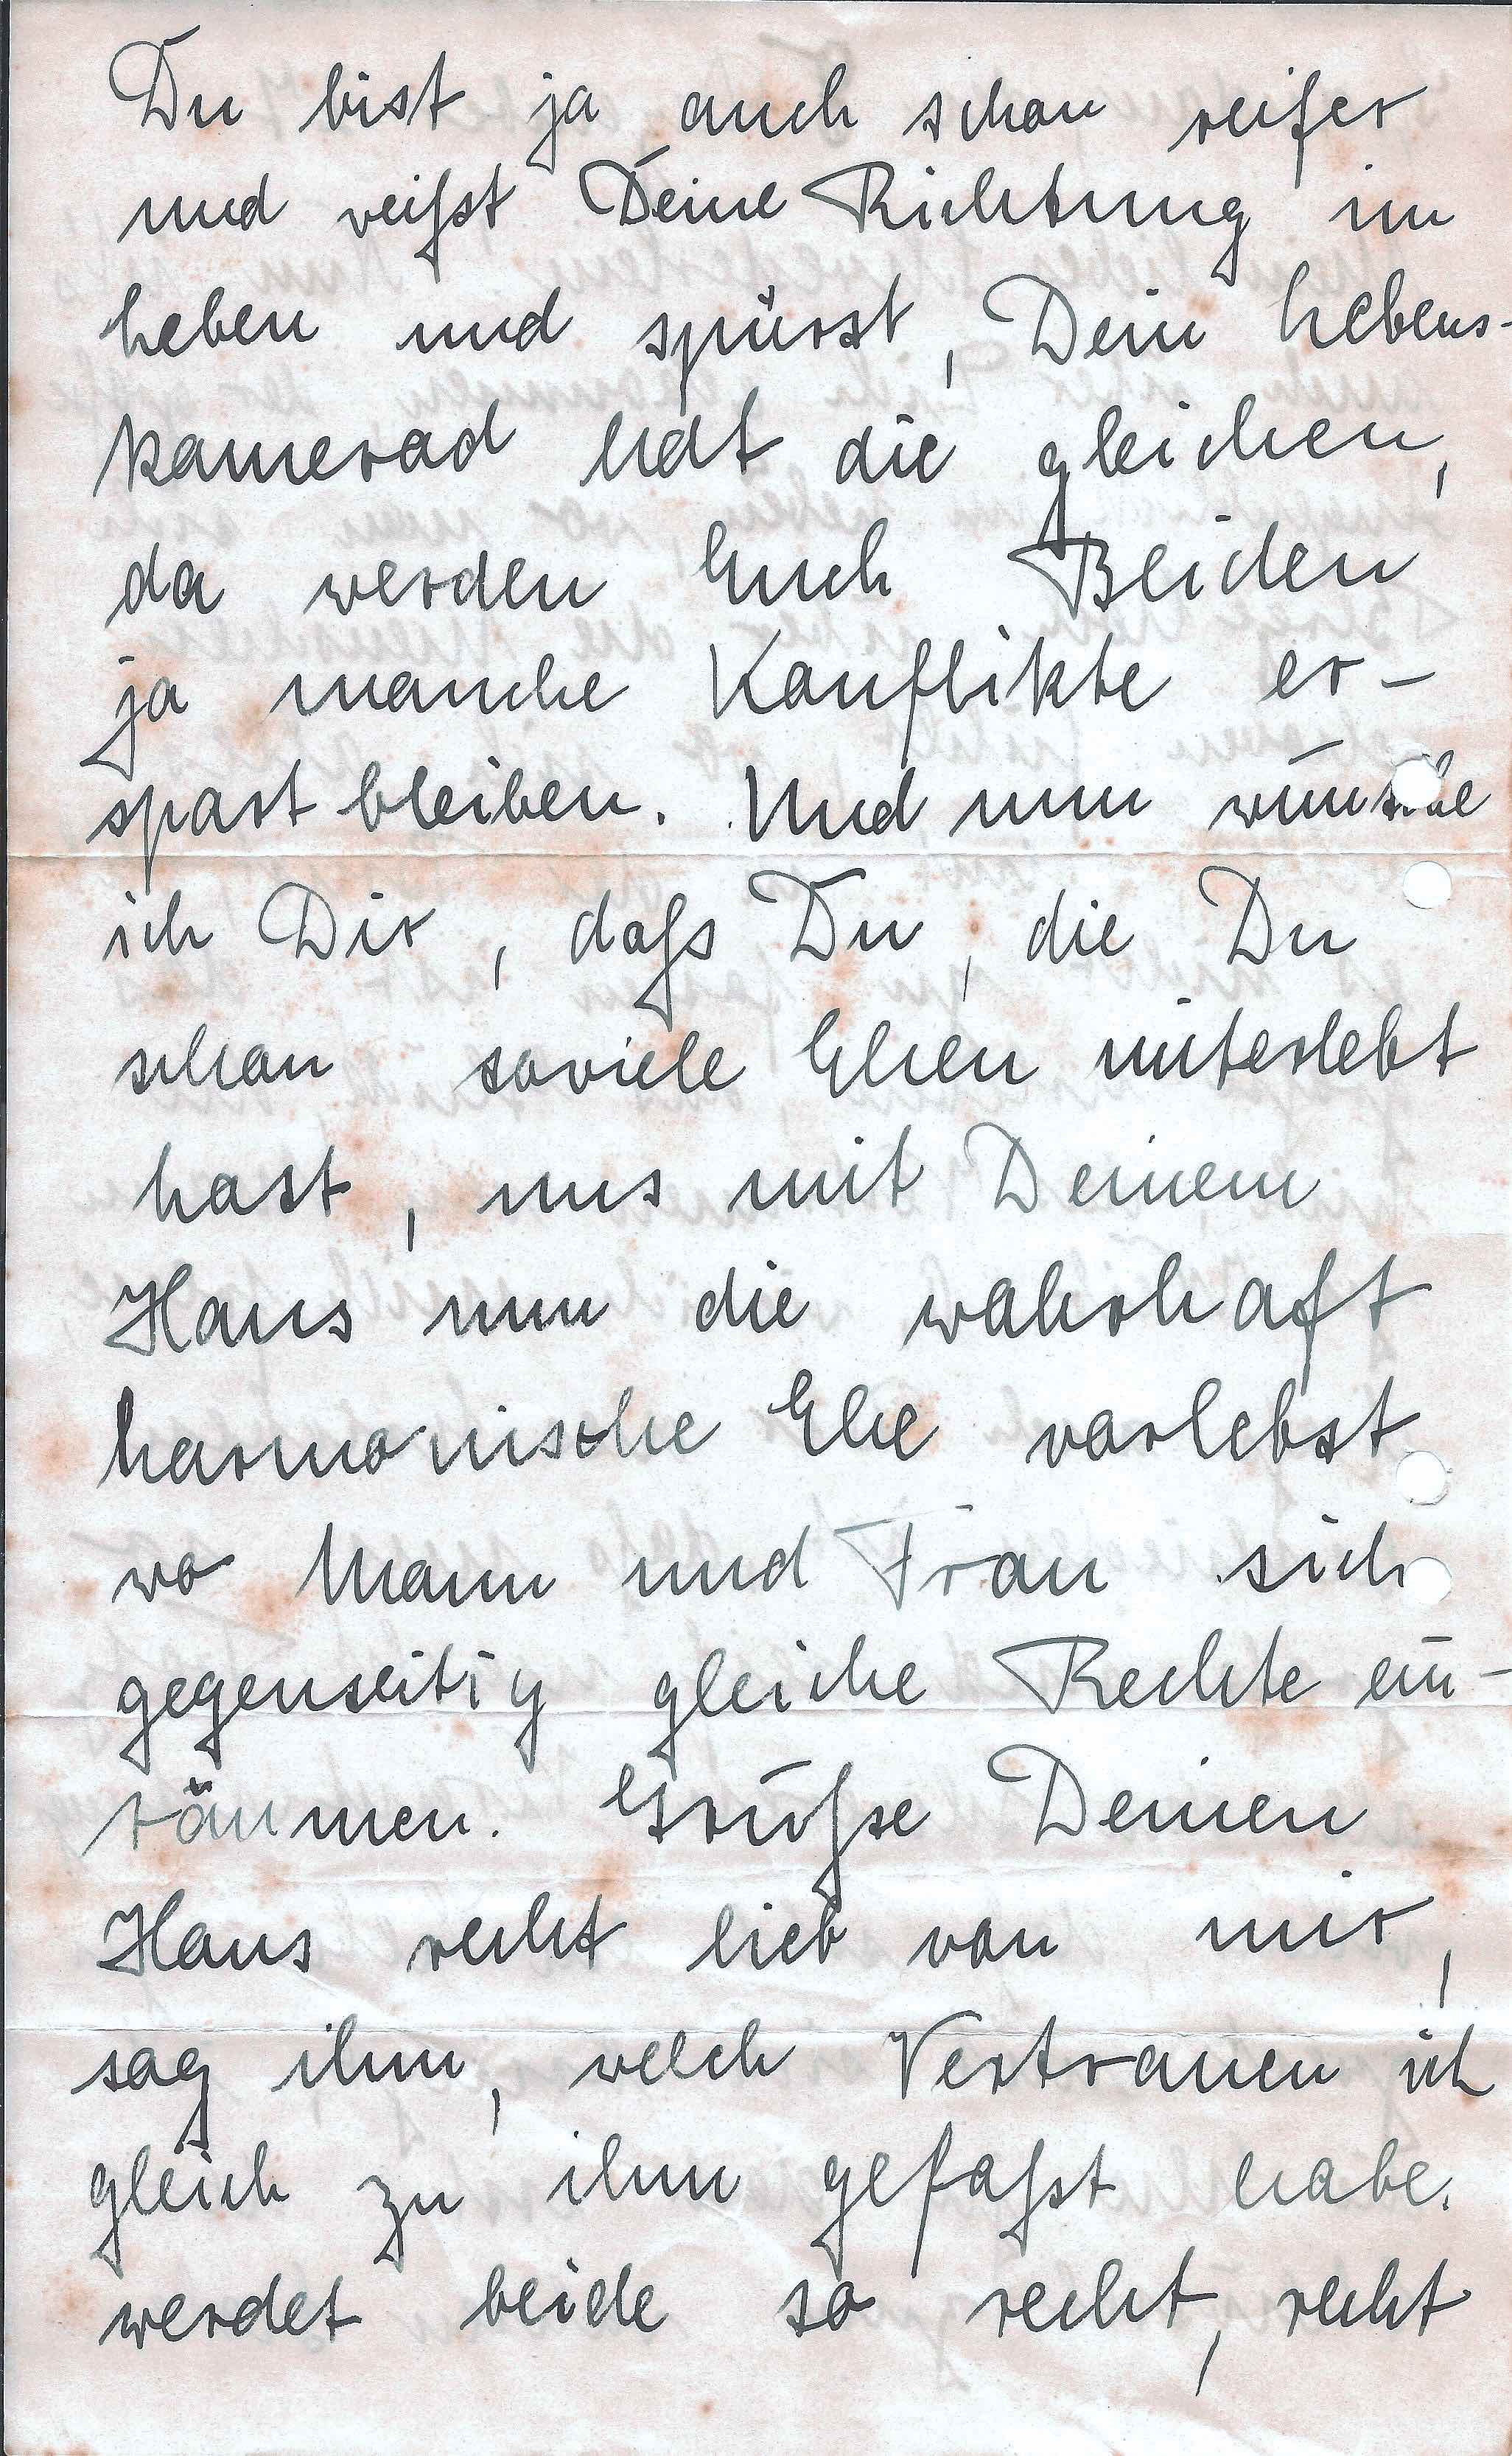 Du bist ja auch schon reifer
und weißt Deine Richtung im
Leben und spürst, Dein Lebens-
kamerad hat die gleichen,
da werden Euch Beiden
ja manche Konflikte er-
spart bleiben. Und nun wünsche
ich Dir, daß Du, die Du
schon soviele Ehen miterlebt
hast, uns mit Deinem
Hans nun die wahrhaft
harmonische Ehe vorlebst
wo Mann und Frau sich
gegenseitig gleiche Rechte ein-
räumen. Grüße Deinen
Hans recht lieb von mir,
sag ihm, welch Vertrauen ich
gleich zu ihm gefaßt habe.
werdet beide so recht, recht